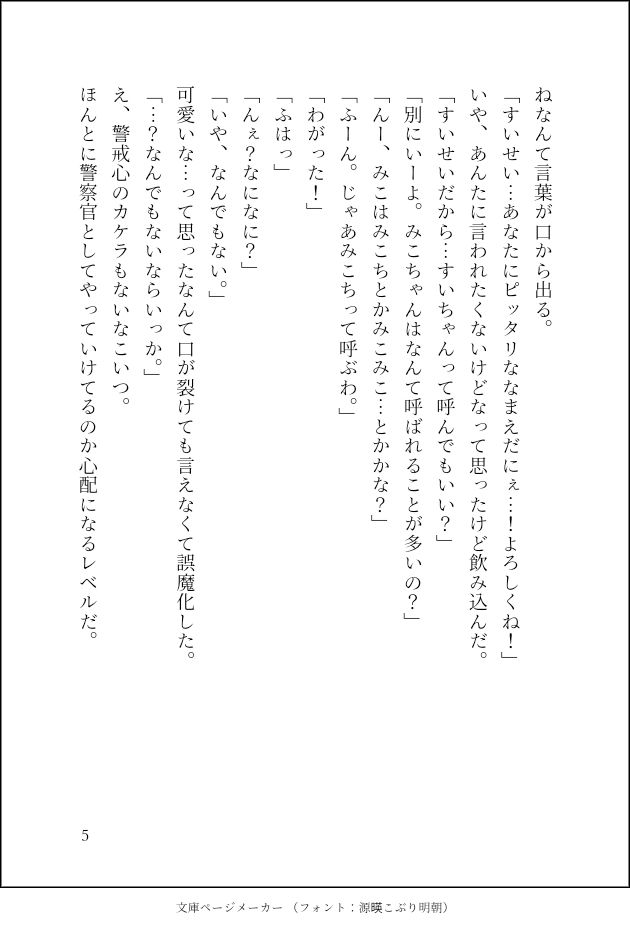 ねなんて言葉が口から出る。
「すいせい…あなたにピッタリななまえだにぇ…！よろしくね！」
いや、あんたに言われたくないけどなって思ったけど飲み込んだ。
「すいせいだから…すいちゃんって呼んでもいい？」
「別にいーよ。みこちゃんはなんて呼ばれることが多いの？」
「んー、みこはみこちとかみこみこ…とかかな？」
「ふーん。じゃあみこちって呼ぶわ。」
「わがった！」
「ふはっ」
「んぇ？なになに？」
「いや、なんでもない。」
可愛いな…って思ったなんて口が裂けても言えなくて誤魔化した。
「…？なんでもないならいっか。」
え、警戒心のカケラもないなこいつ。
ほんとに警察官としてやっていけてるのか心配になるレベルだ。
5
文庫ページメーカー（フォント：源暎こぶり明朝）